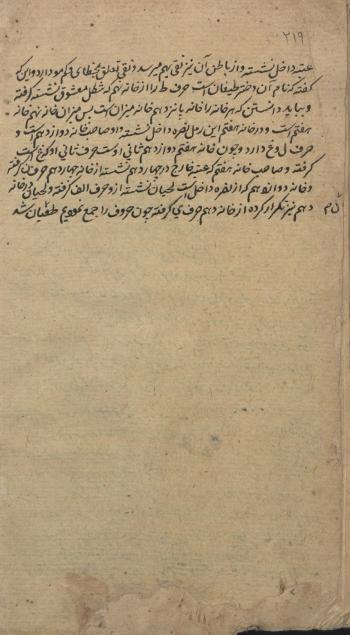 ۲۱۹
عتبه داخل نشسته و از باطن آن نیز نقی بهم میرسد و نقی تعلق دارد و این که
گفته که نام آن دختر طیفان است حرف ط را از خانه نهم که شکل معشوق نشسته گرفته
و بباید دانستن که هر خانه را خانه پانزدهم خانه میزان است پس میزان خانه نهم خانه
هفتم است و در خانه هفتم این رمل نقره داخل نشسته و او صاحب خانه دوازدهم است و
حرف ل و غ دارد و چون خانه هفتم دوازدهم ثمانی اوست حرف ثمانی او که غ است
گرفته و صاحب خانه هفتم که عتبه خارج در چهاردهم نشسته از خانه چهاردهم حرف ن گرفته
و خانه دوازدهم که از نقره داخل است لحیان نشسته از و حرف الف گرفته و لحیانی در خانه
دهم نیز تکرار کرده از خانه دهم حرف ی گرفته چون حروف را جمع نمودیم طغیان شد